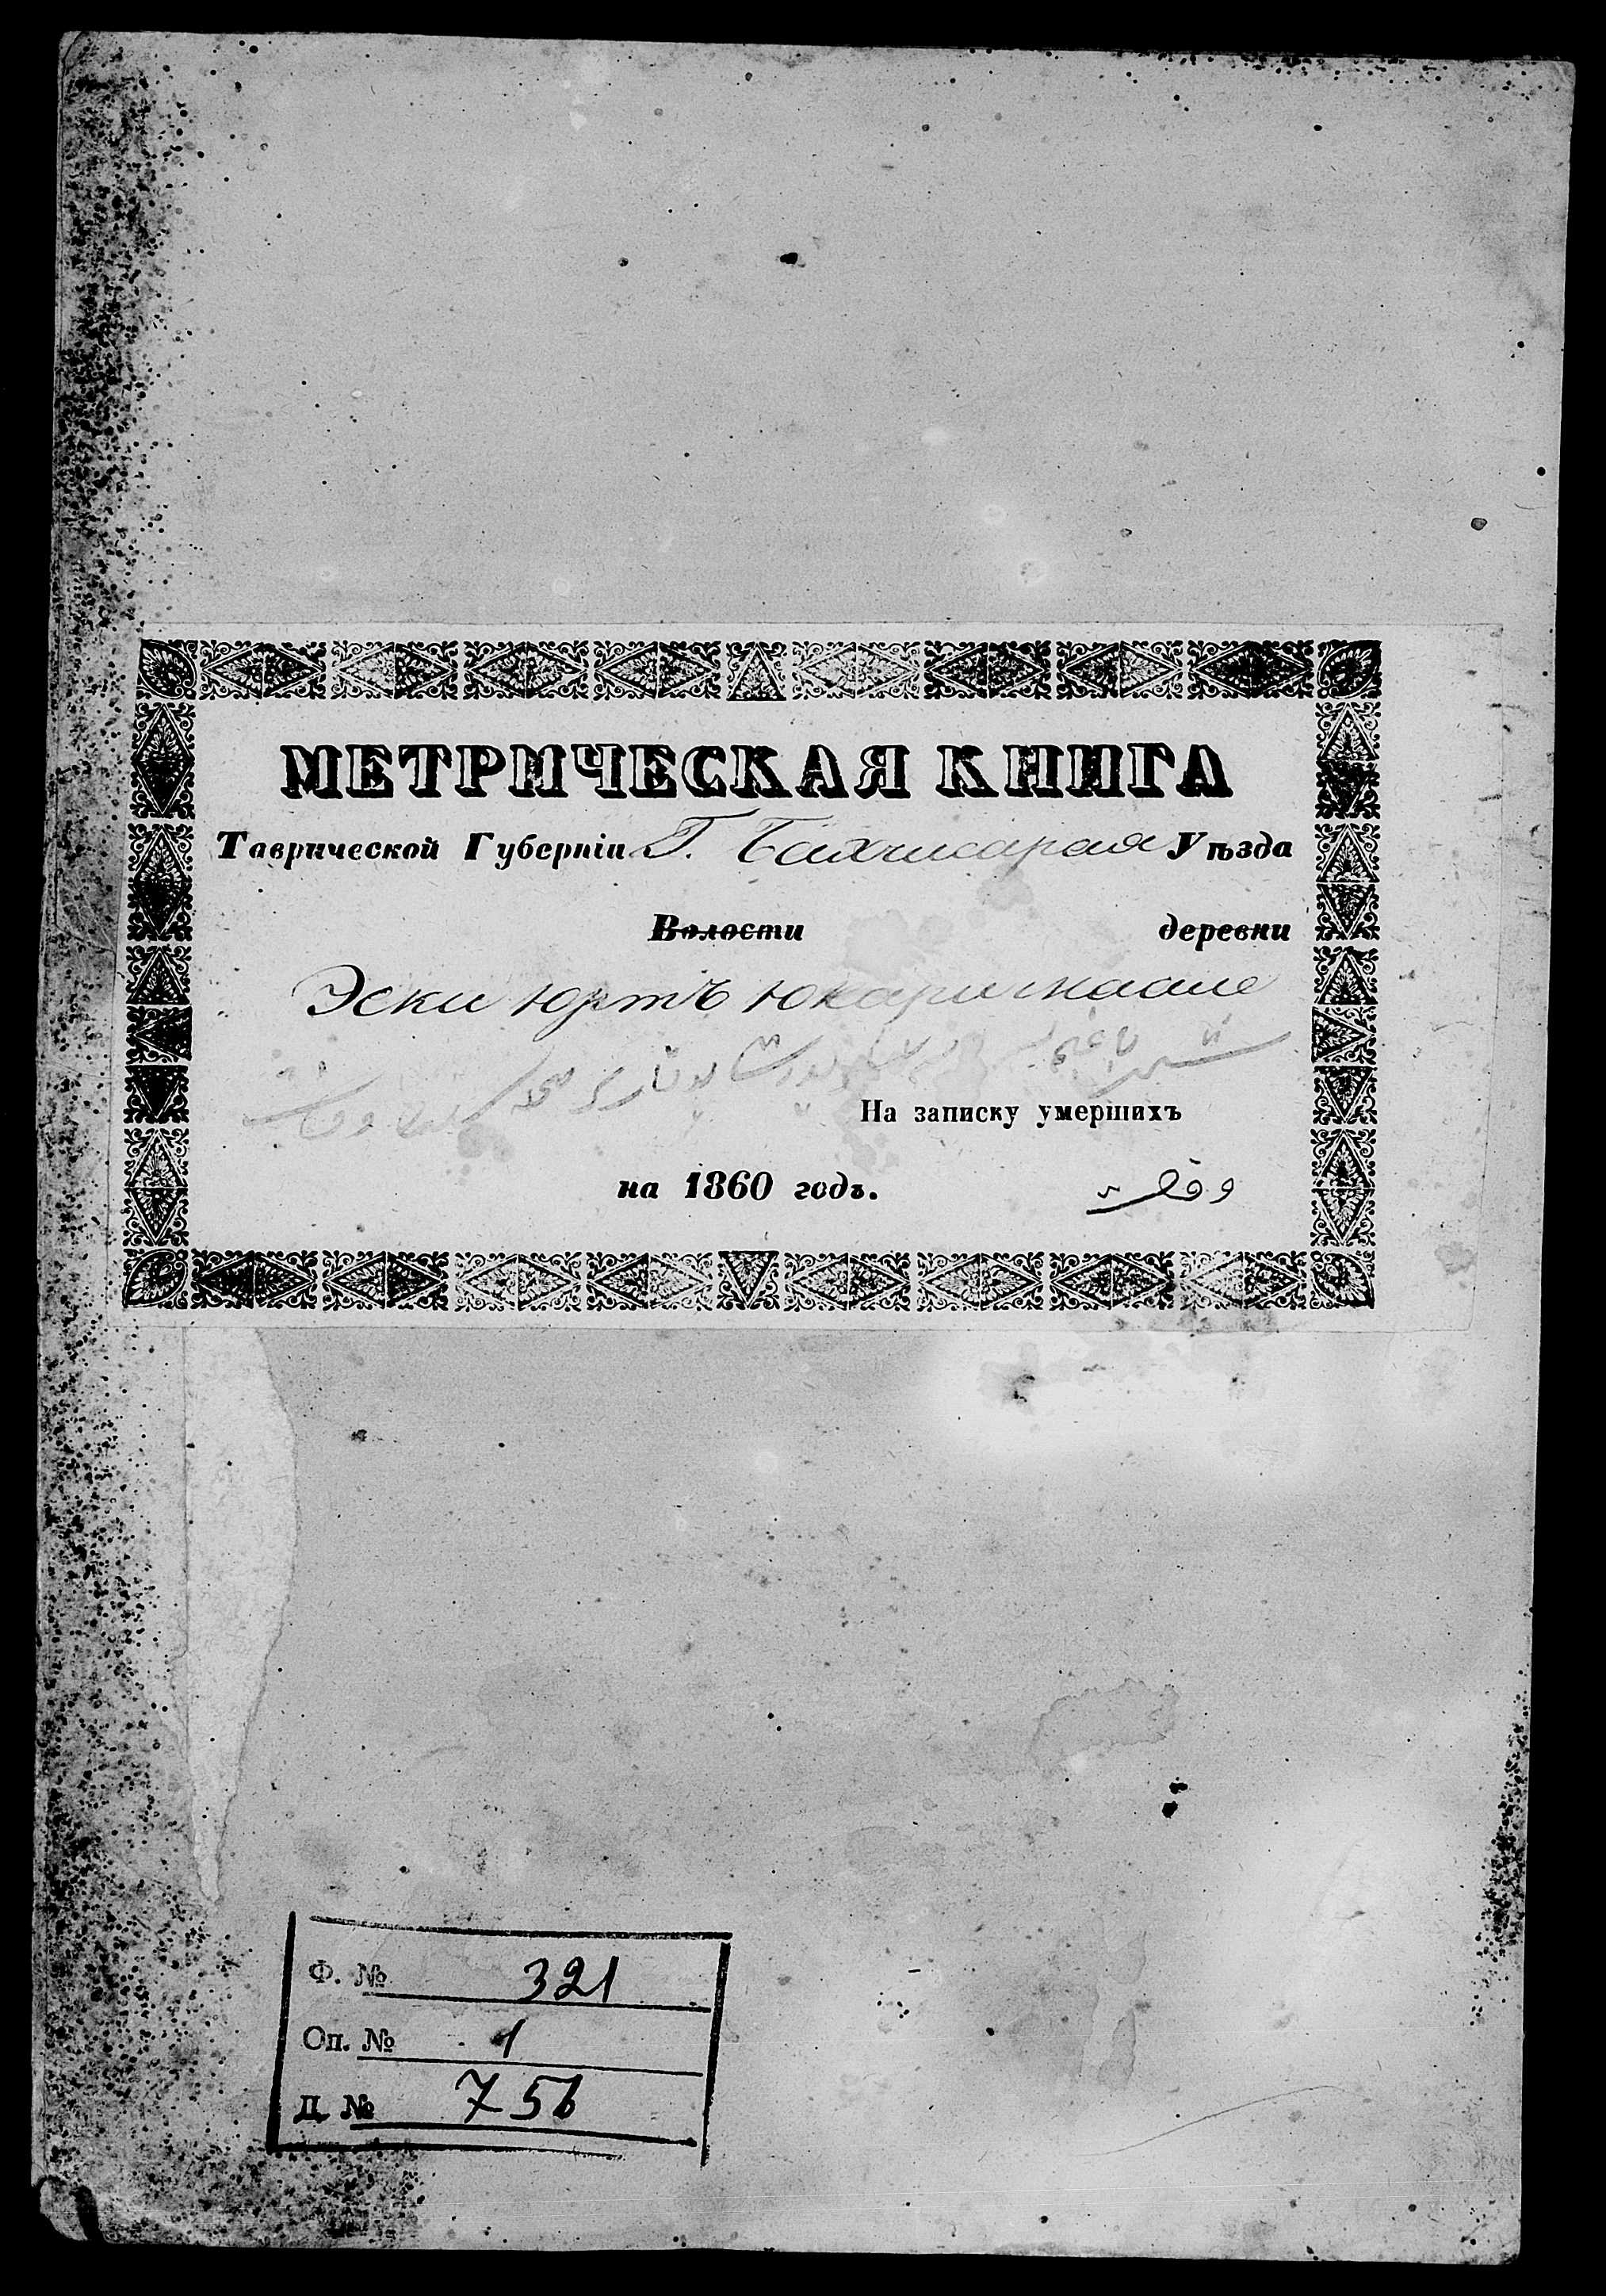 МЕТРИЧЕСКАЯ КНИГА
Таврической Губерніи Г. Бахчисарая Уѣзда
Волости деревни
Эски Юртъ Юкари маале
На записку умершихъ
на 1860 годъ. وفات
Ф. № 321
Оп. № 1
Д. № 756